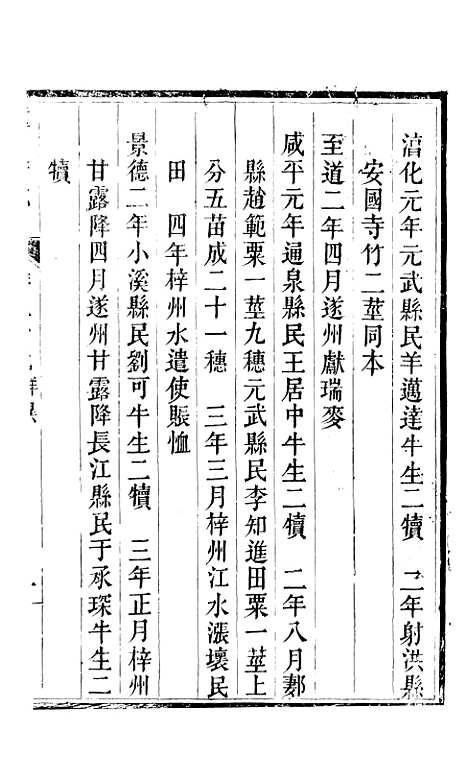 淳化元年元武縣民羊邁達牛生二犢　二年射洪縣
安國寺竹二莖同本
至道二年四月遂州獻瑞麥
咸平元年通泉縣民王居中牛生二犢　二年八月郪
縣趙範粟一莖九穗元武縣民李知進田粟一莖上
分五苗成二十一穗　三年三月梓州江水漲壞民
田　四年梓州水遣使賑恤
景德二年小溪縣民劉可牛生二犢　三年正月梓州
甘露降四月遂州甘露降長江縣民于承琛牛生二
犢